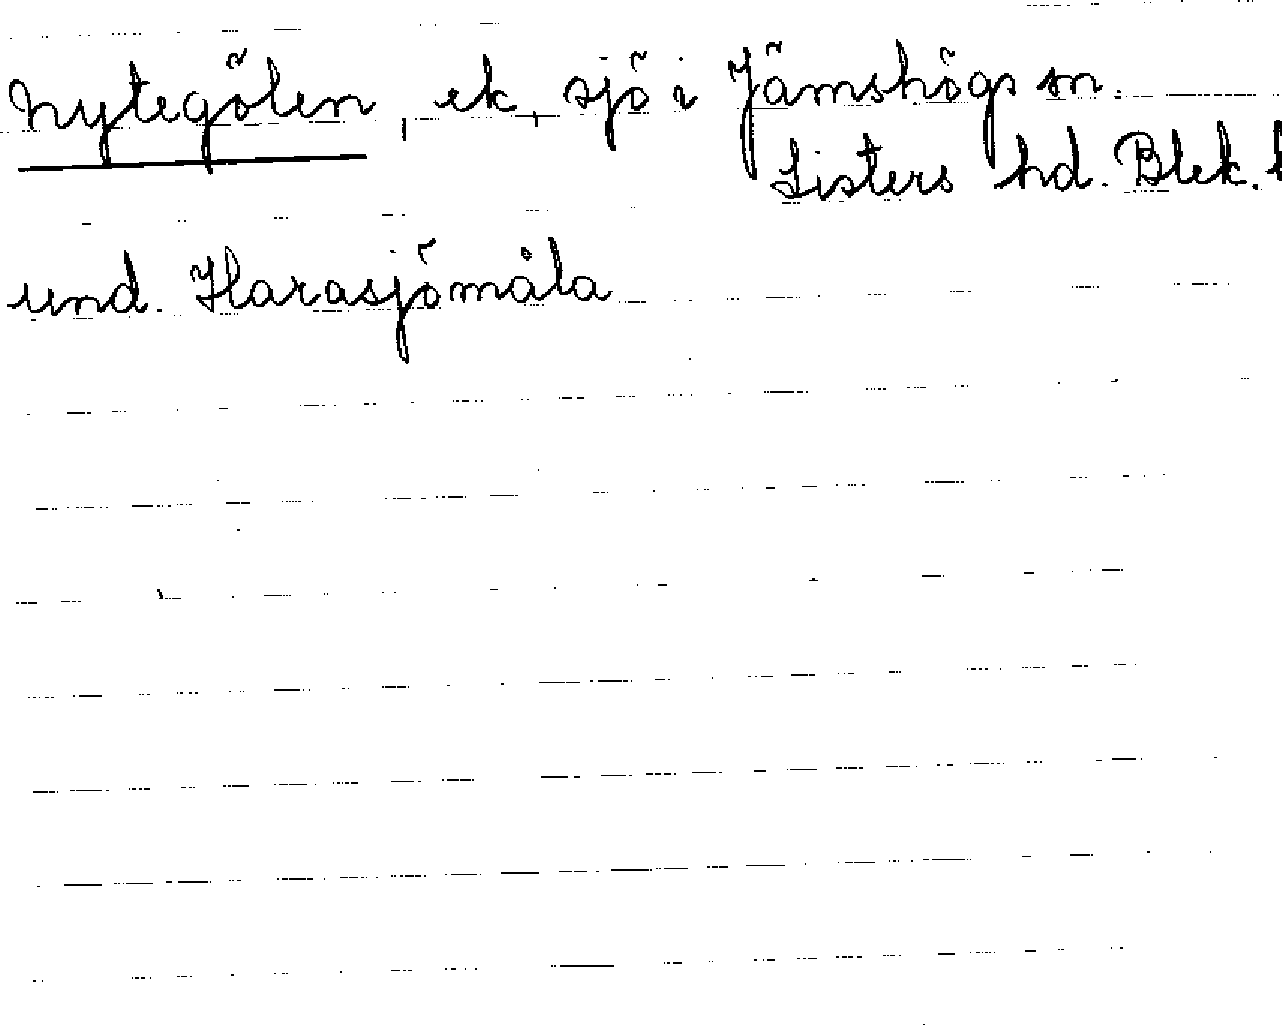 Nytegölen, ek, sjö i Jämshögs sn.
Listers hd. Blek.
und. Harasjömåla